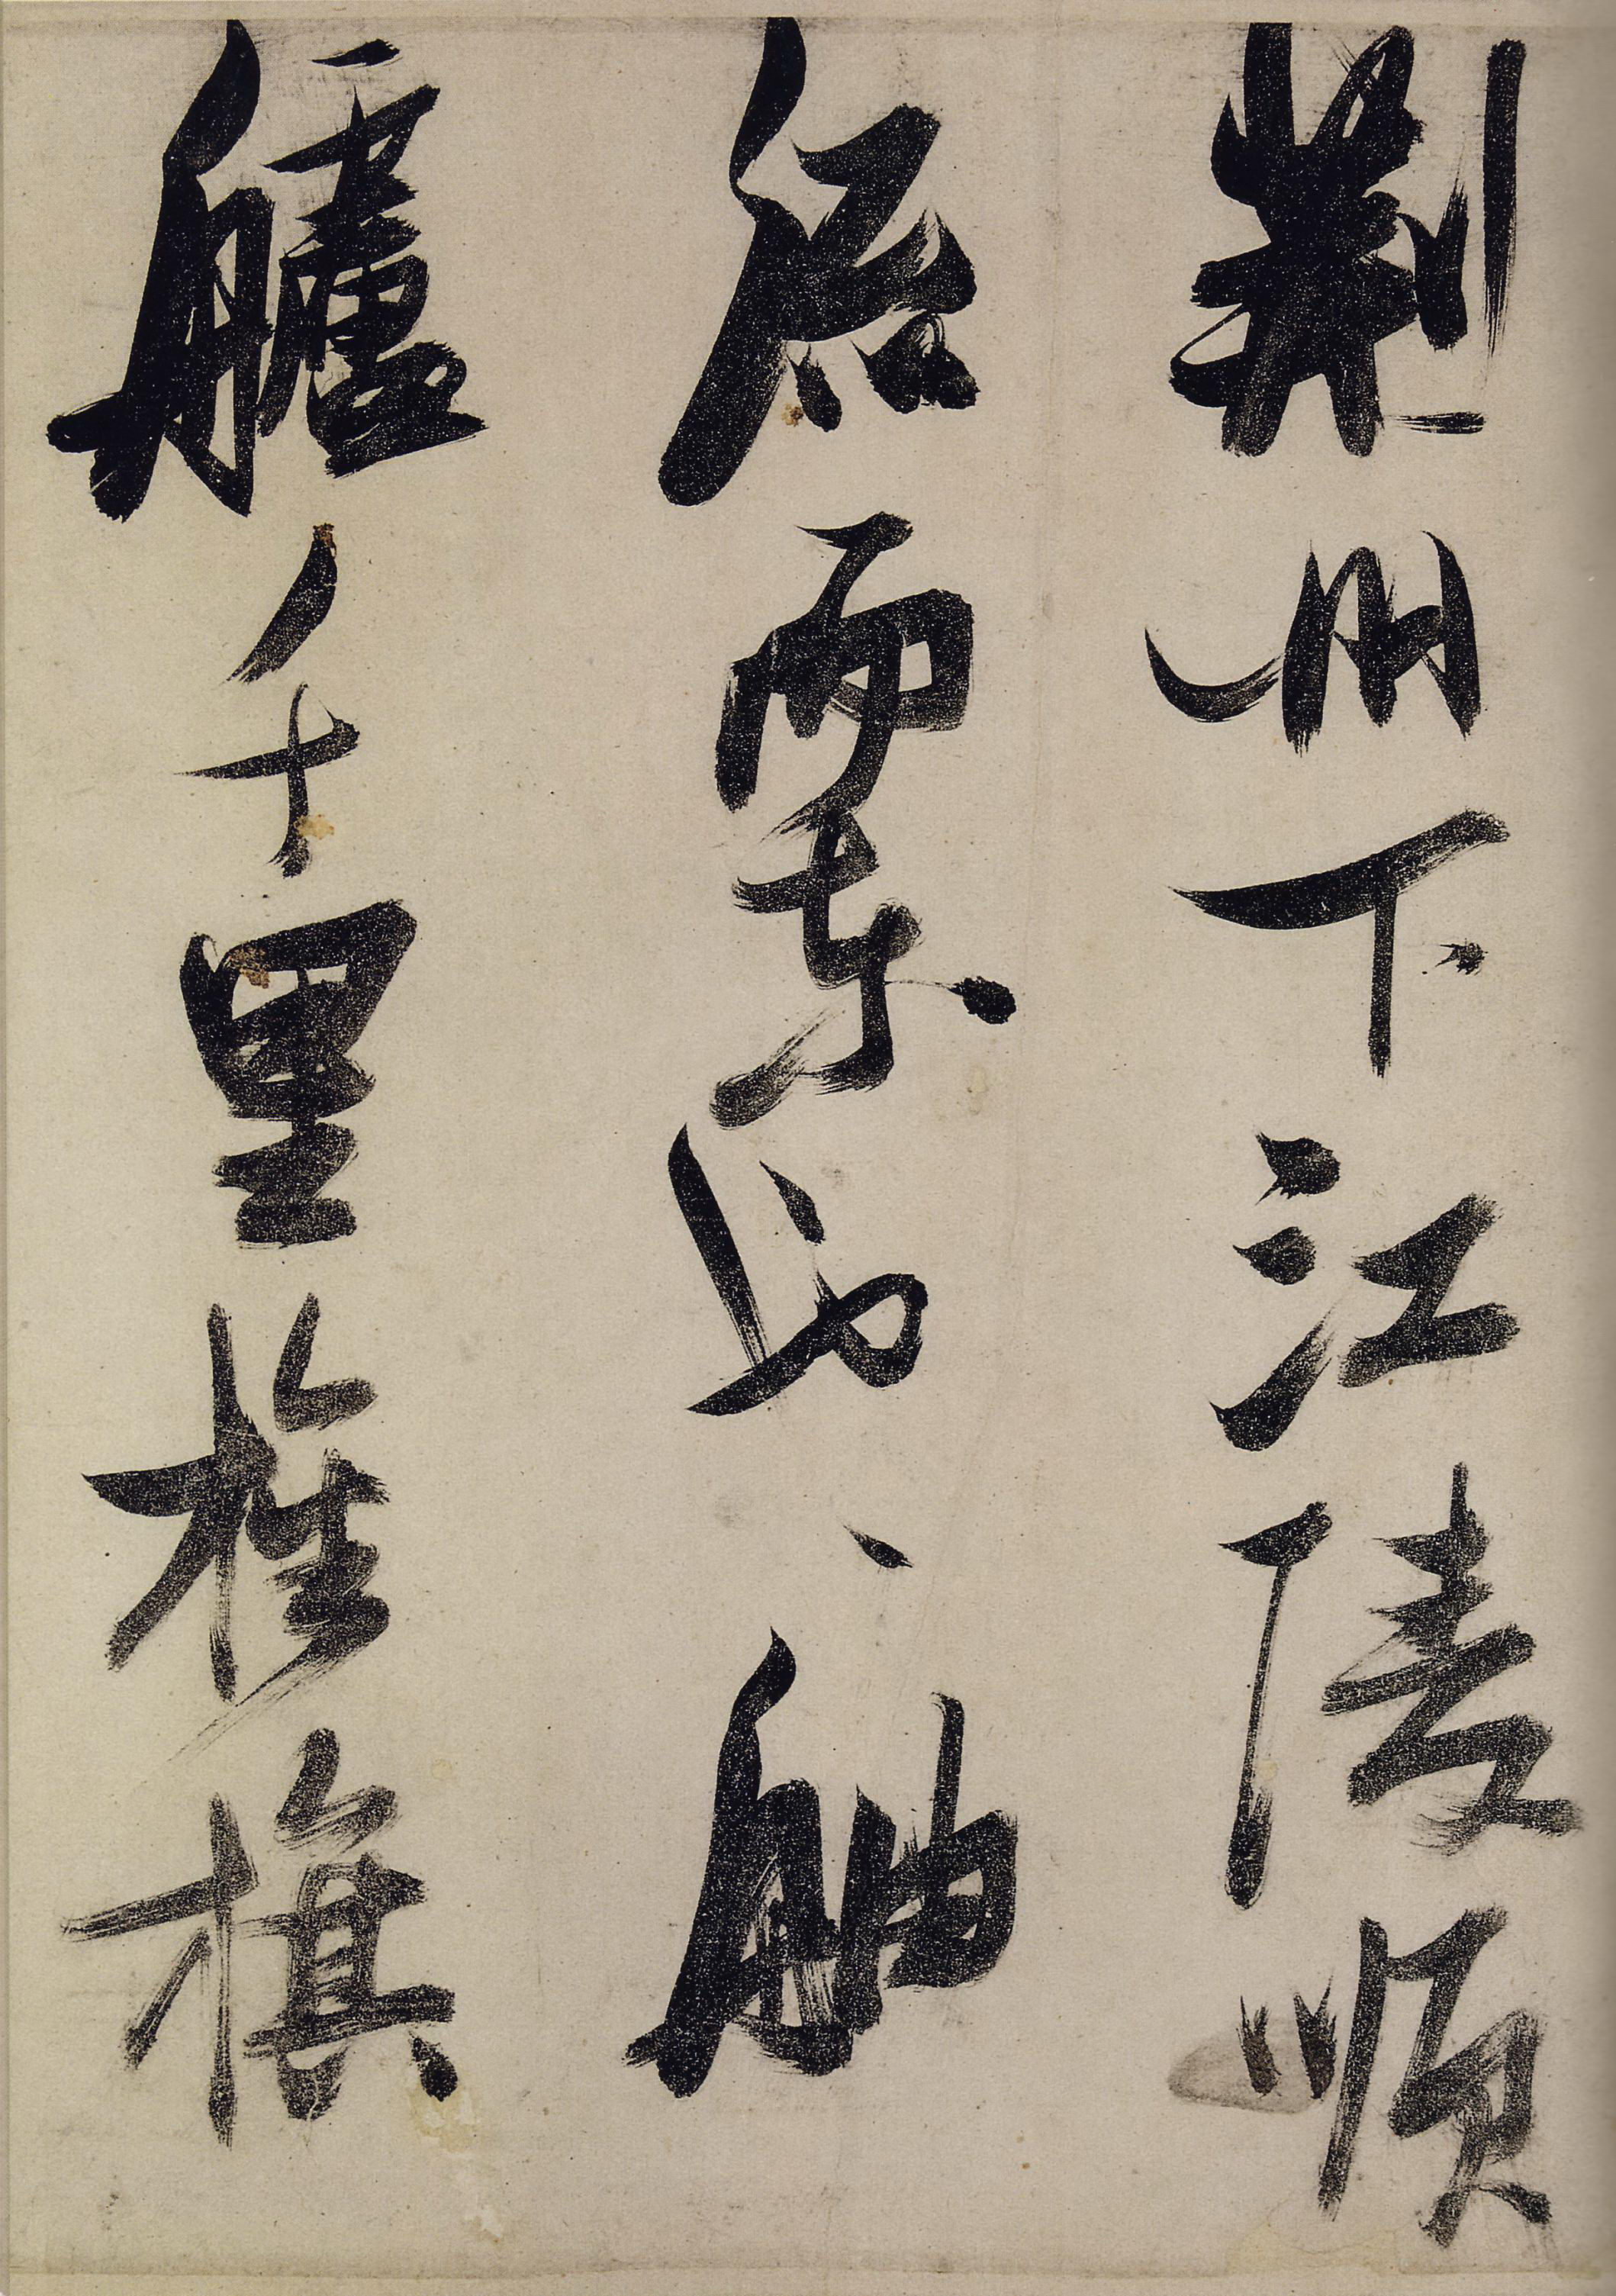 荊州下江陵順
流而東也舳
艫千里旌旗